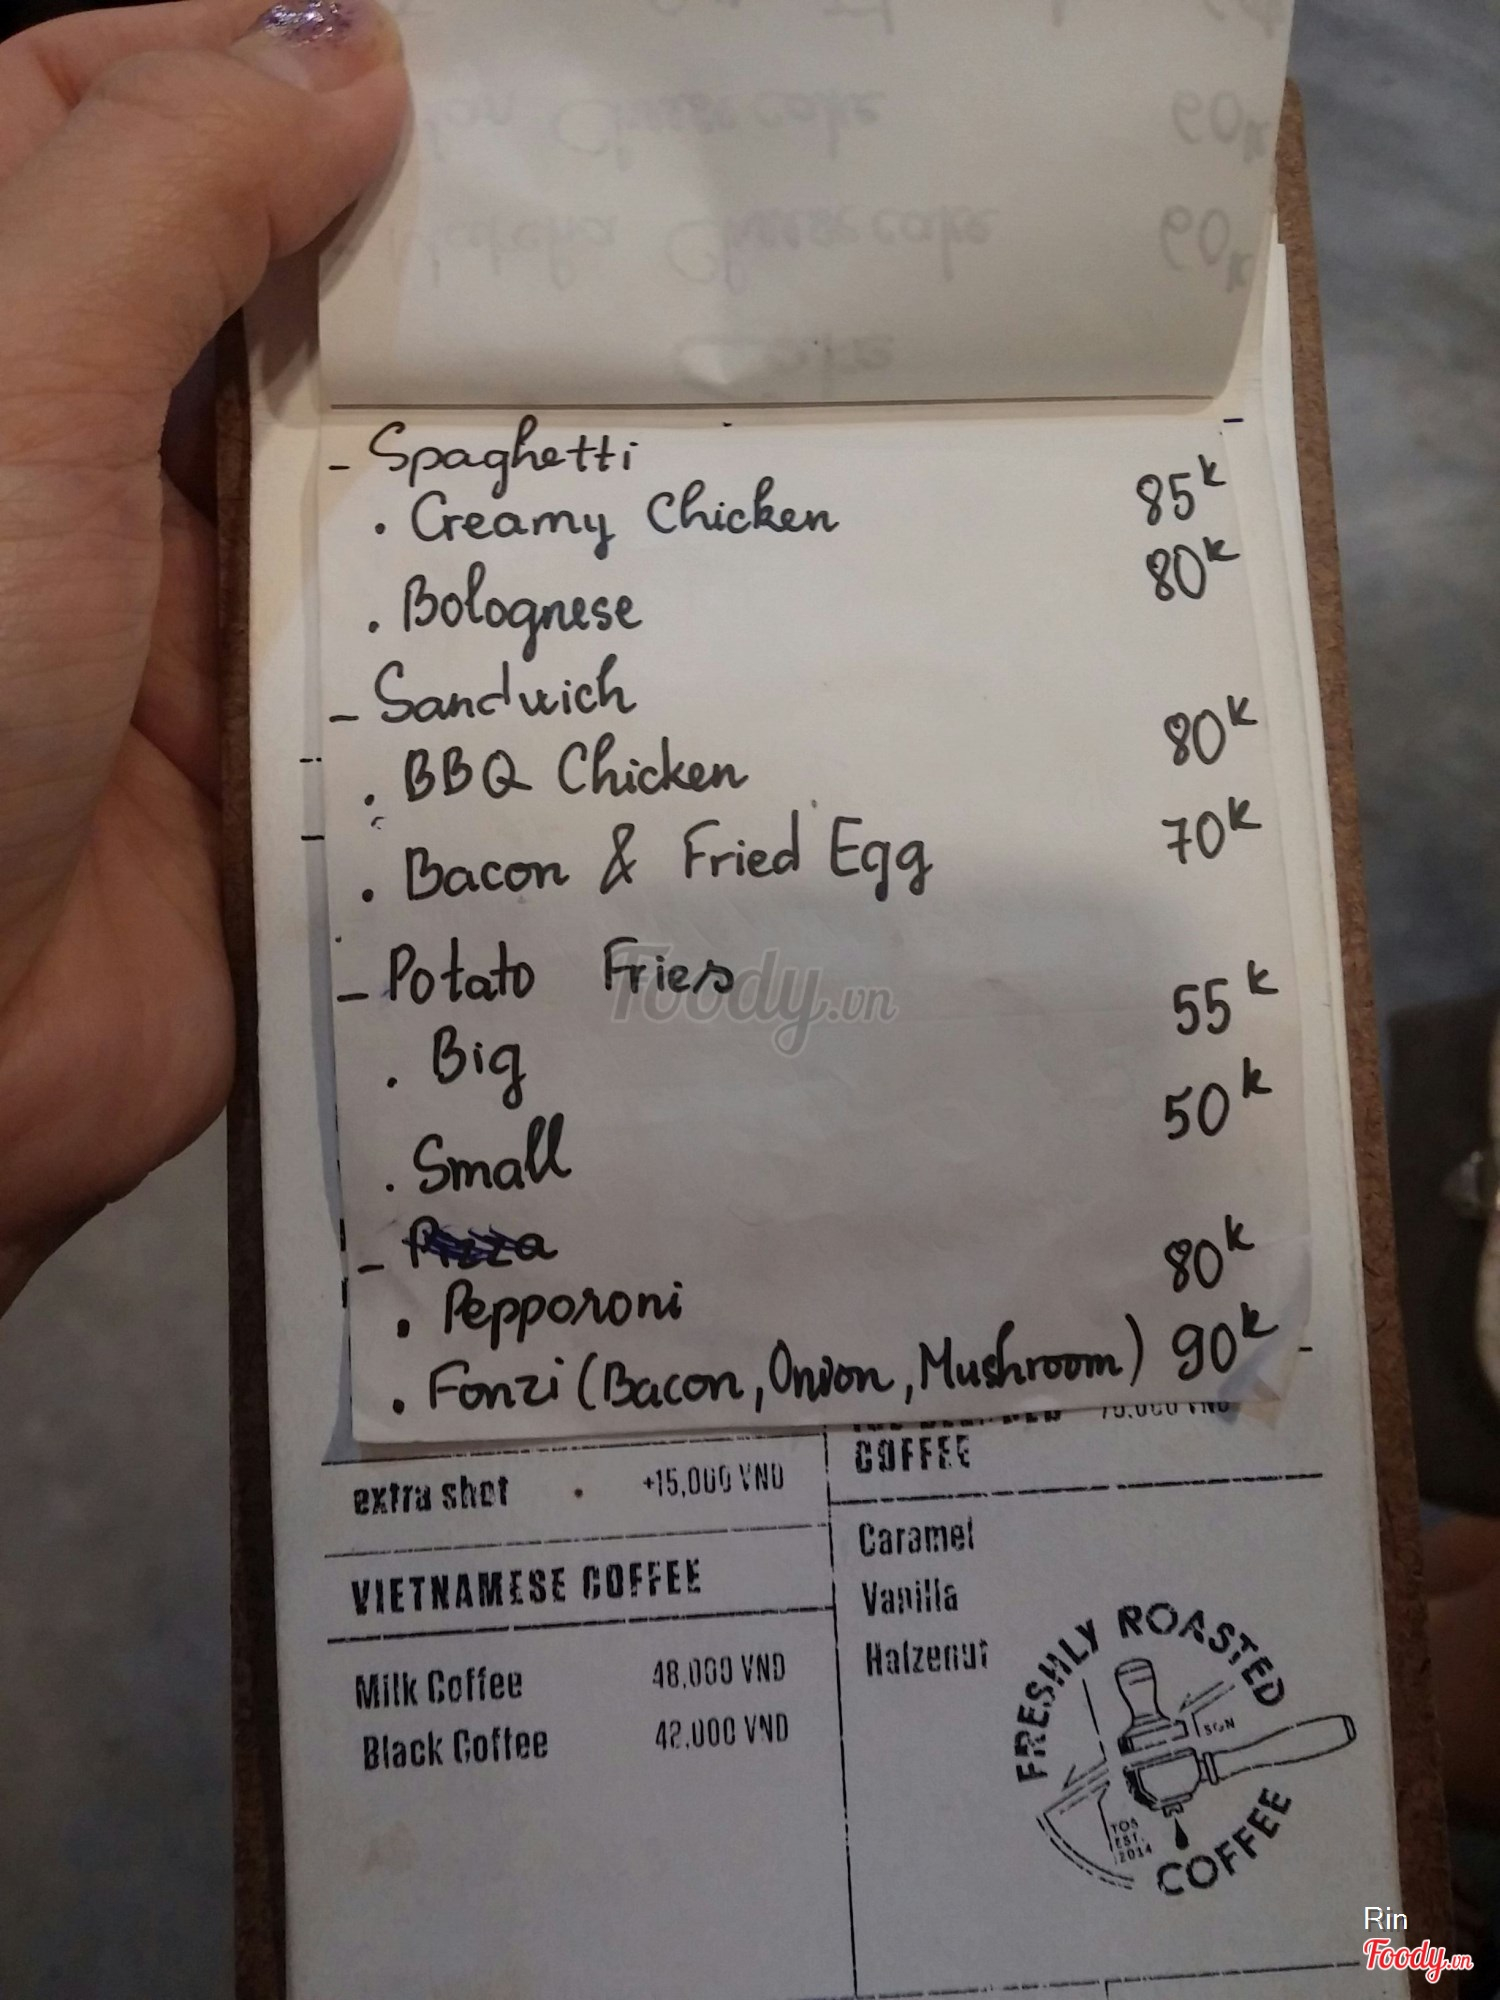 Cheesecake 60k
Matcha Cheesecake 60k
Cake
- Spaghetti
. Creamy Chicken 85k
. Bolognese 80k
- Sandwich
. BBQ Chicken 80k
. Bacon & Fried Egg 70k
- Potato Fries
. Big 55k
. Small 50k
- Pizza
. Pepporoni 80k
. Fonzi (Bacon, Onion, Mushroom) 90k
extra shot +15,000 VND
VIETNAMESE COFFEE
Milk Coffee 48,000 VND
Black Coffee 42,000 VND
COFFEE
Caramel
Vanilla
Halzenut
FRESHLY ROASTED
SGN
TOA
EST.
2014
COFFEE
Foody.vn
Rin
Foody.vn